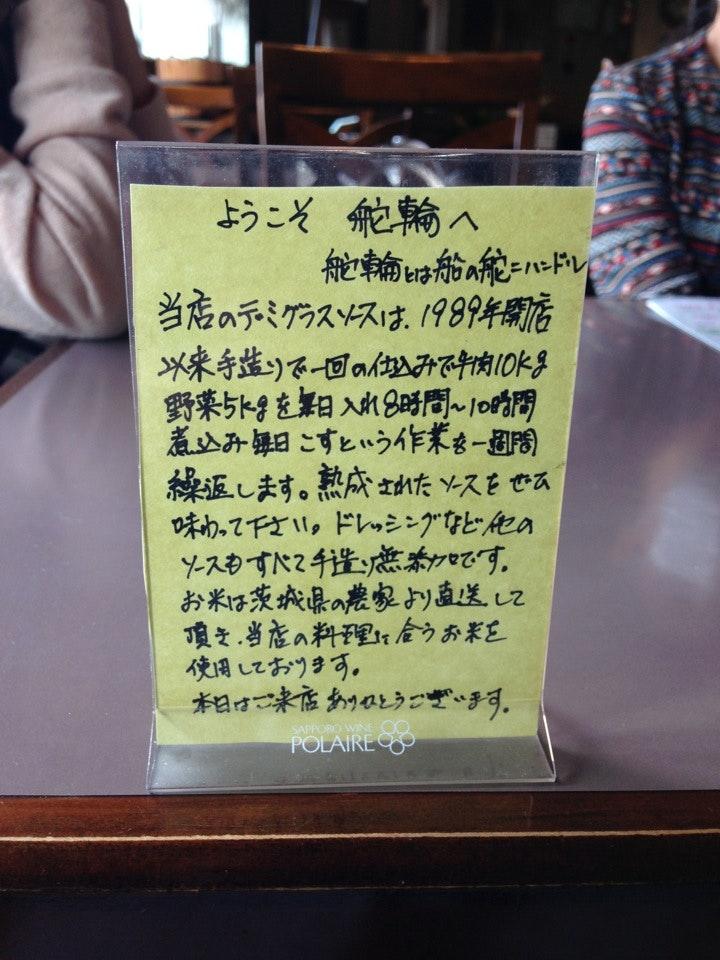 ようこそ 舵輪へ
舵輪とは船の舵=ハンドル
当店のデミグラスソースは、1989年開店
以来手造りで一回の仕込みで牛肉10kg
野菜5kgを毎日入れ8時間～10時間
煮込み毎日こすという作業を一週間
繰返します。熟成されたソースをぜひ
味わって下さい。ドレッシングなど他の
ソースもすべて手造り無添加です。
お米は茨城県の農家より直送して
頂き、当店の料理に合うお米を
使用しております。
本日はご来店ありがとうございます。
SAPPORO WINE
POLAIRE